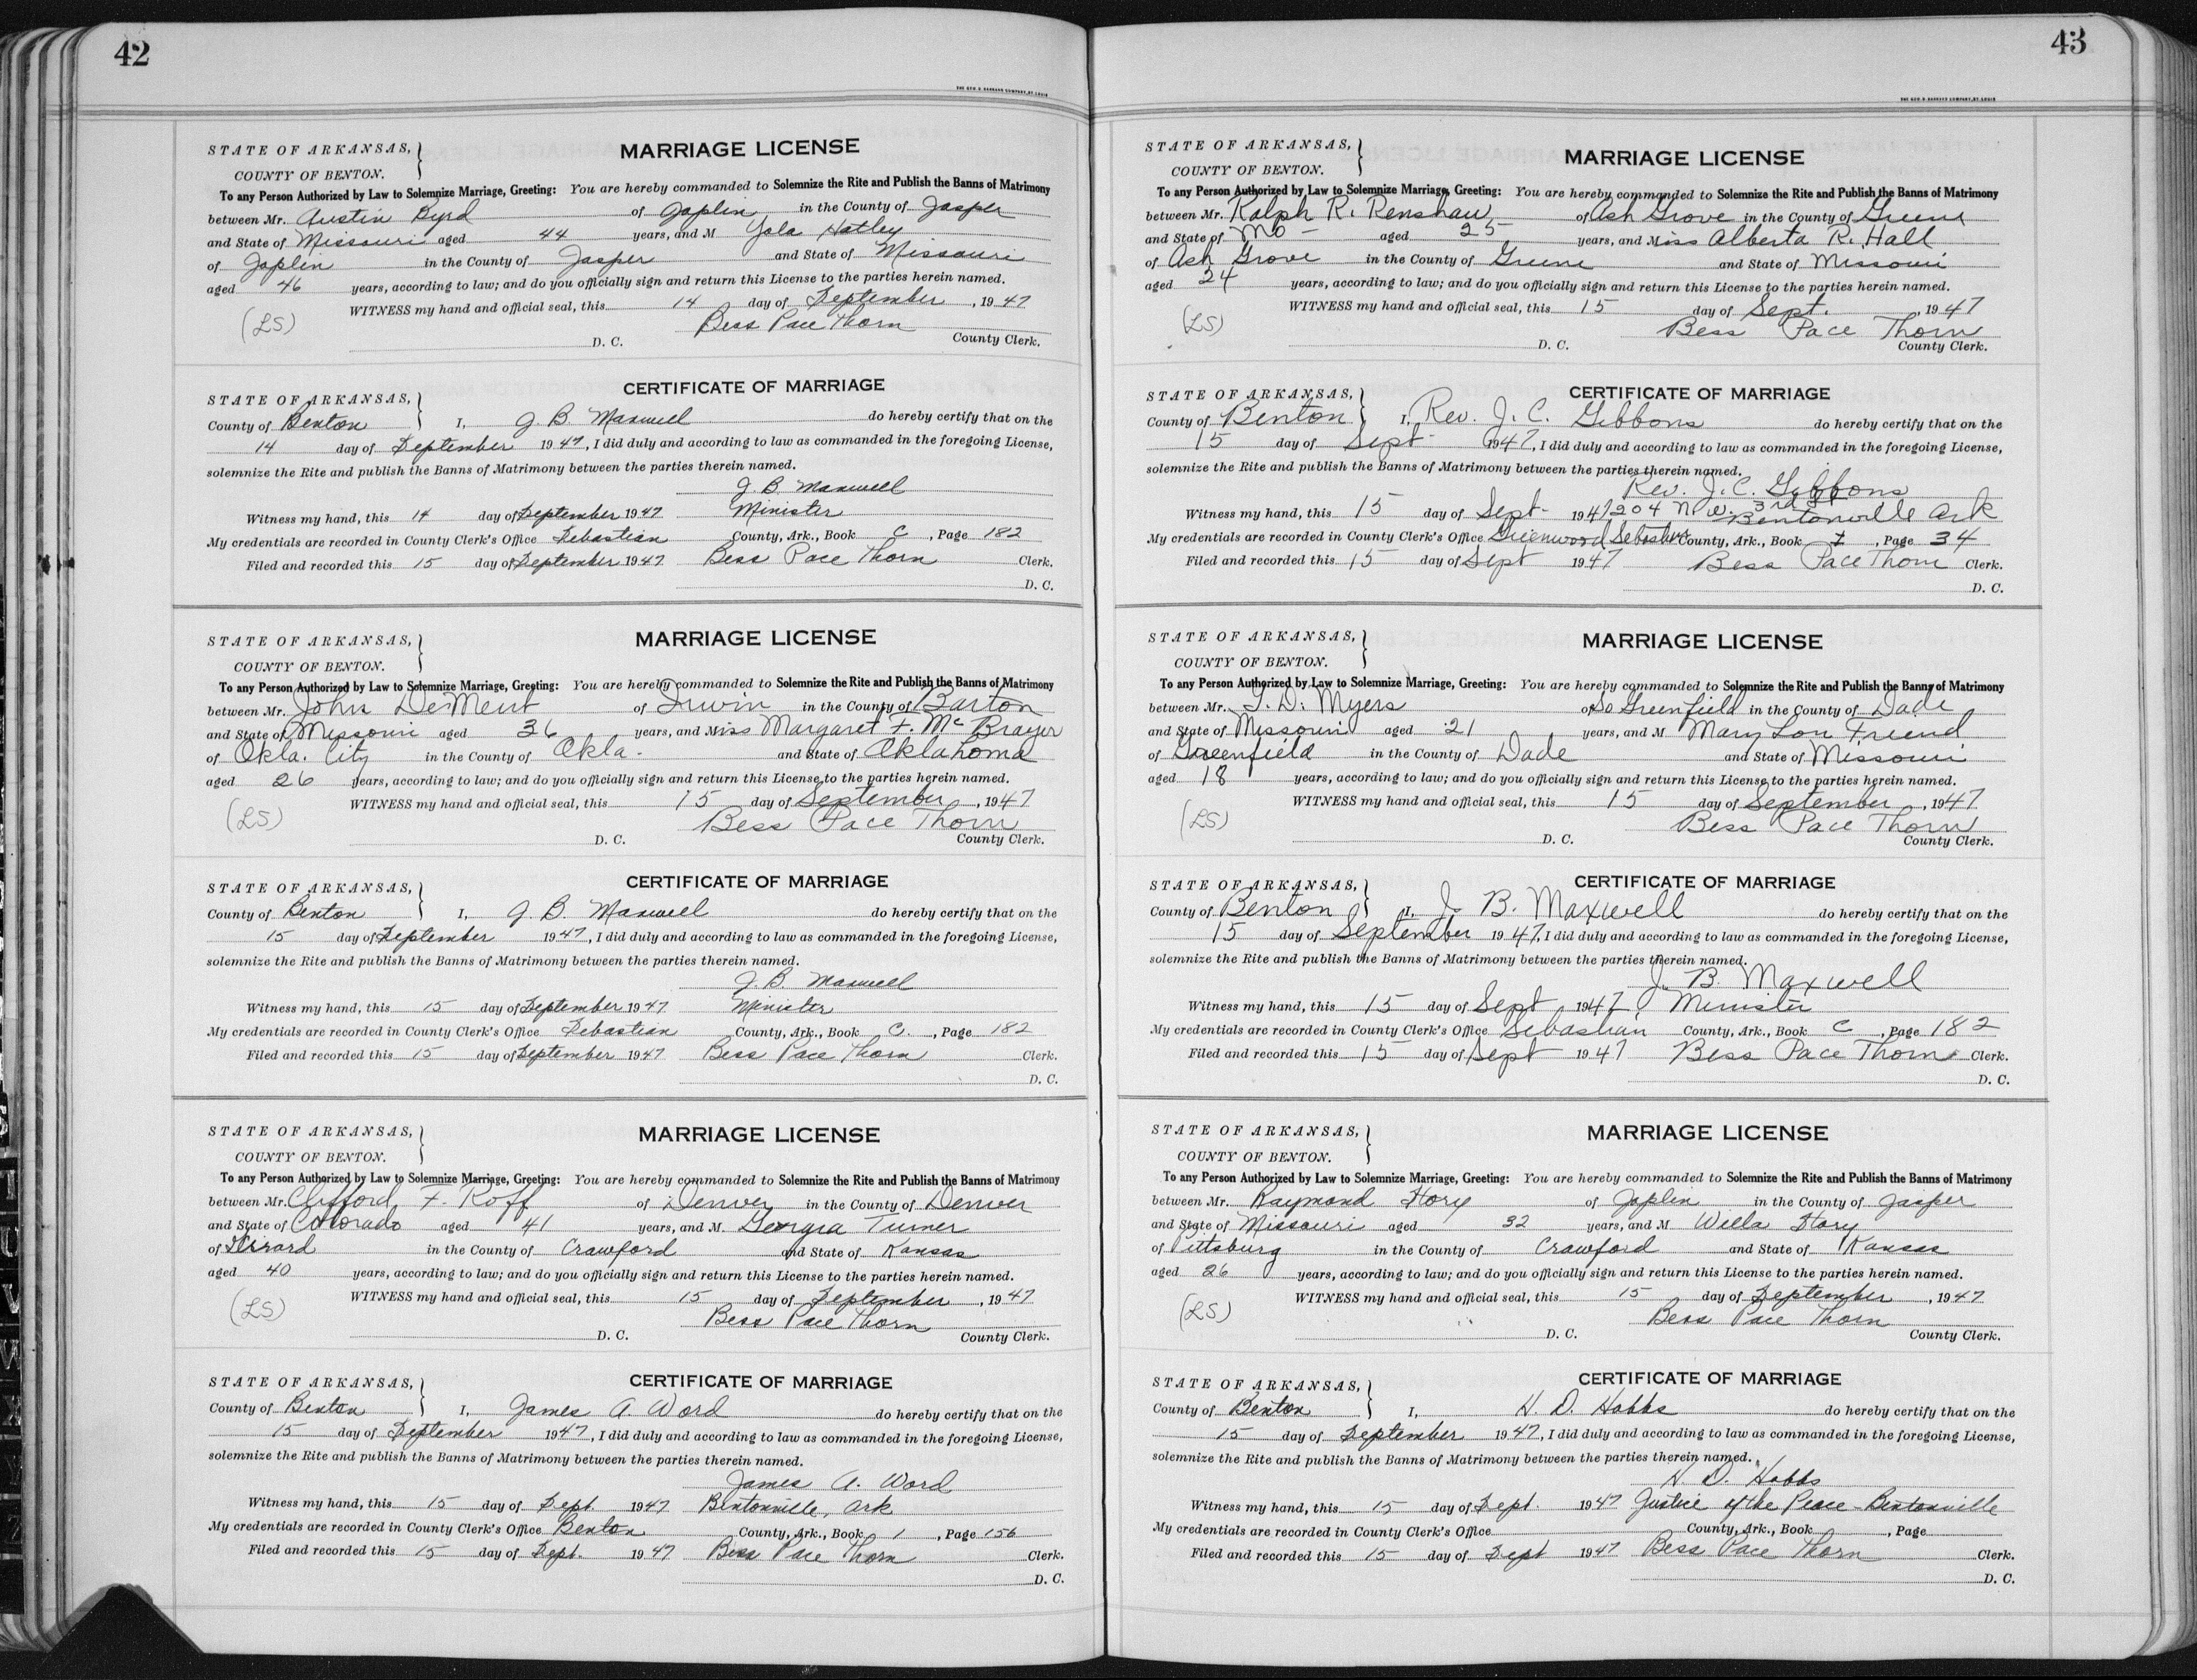 42
THE GEO. D. BARNARD COMPANY, ST. LOUIS
STATE OF ARKANSAS,
COUNTY OF BENTON.
MARRIAGE LICENSE
To any Person Authorized by Law to Solemnize Marriage, Greeting: You are hereby commanded to Solemnize the Rite and Publish the Banns of Matrimony
between Mr. Austin Byrd of Joplin in the County of Jasper
and State of Missouri aged 44 years, and M Yola Hatley
of Joplin in the County of Jasper and State of Missouri
aged 46 years, according to law; and do you officially sign and return this License to the parties herein named.
WITNESS my hand and official seal, this 14 day of September, 1947
(LS) Bess Pace Thorn
D. C. County Clerk.
CERTIFICATE OF MARRIAGE
STATE OF ARKANSAS,
County of Benton I, J B Maxwell do hereby certify that on the
14 day of September 1947, I did duly and according to law as commanded in the foregoing License,
solemnize the Rite and publish the Banns of Matrimony between the parties therein named.
J. B. Maxwell
Witness my hand, this 14 day of September 1947 Minister
My credentials are recorded in County Clerk's Office Sebastian County, Ark., Book C, Page 182
Filed and recorded this 15 day of September 1947 Bess Pace Thorn Clerk.
D. C.
STATE OF ARKANSAS,
COUNTY OF BENTON.
MARRIAGE LICENSE
To any Person Authorized by Law to Solemnize Marriage, Greeting: You are hereby commanded to Solemnize the Rite and Publish the Banns of Matrimony
between Mr. John DeMent of Irwin in the County of Barton
and State of Missouri aged 36 years, and Miss Margaret F. McBrayer
of Okla. City in the County of Okla. and State of Oklahoma
aged 26 years, according to law; and do you officially sign and return this License to the parties herein named.
WITNESS my hand and official seal, this 15 day of September, 1947
(LS) Bess Pace Thorn
D. C. County Clerk.
CERTIFICATE OF MARRIAGE
STATE OF ARKANSAS,
County of Benton I, J B. Maxwell do hereby certify that on the
15 day of September 1947, I did duly and according to law as commanded in the foregoing License,
solemnize the Rite and publish the Banns of Matrimony between the parties therein named.
J. B. Maxwell
Witness my hand, this 15 day of September 1947 Minister
My credentials are recorded in County Clerk's Office Sebastian County, Ark., Book C., Page 182
Filed and recorded this 15 day of September 1947 Bess Pace Thorn Clerk.
D. C.
STATE OF ARKANSAS,
COUNTY OF BENTON.
MARRIAGE LICENSE
To any Person Authorized by Law to Solemnize Marriage, Greeting: You are hereby commanded to Solemnize the Rite and Publish the Banns of Matrimony
between Mr. Clifford F. Roff of Denver in the County of Denver
and State of Colorado aged 41 years, and M. Georgia Turner
of Girard in the County of Crawford and State of Kansas
aged 40 years, according to law; and do you officially sign and return this License to the parties herein named.
WITNESS my hand and official seal, this 15 day of September, 1947
(LS) Bess Pace Thorn
D. C. County Clerk.
CERTIFICATE OF MARRIAGE
STATE OF ARKANSAS,
County of Benton I, James A. Word do hereby certify that on the
15 day of September 1947, I did duly and according to law as commanded in the foregoing License,
solemnize the Rite and publish the Banns of Matrimony between the parties therein named.
James A. Word
Witness my hand, this 15 day of Sept 1947 Bentonville, Ark
My credentials are recorded in County Clerk's Office Benton County, Ark., Book 1, Page 156
Filed and recorded this 15 day of Sept. 1947 Bess Pace Thorn Clerk.
D. C.
43
THE GEO. D. BARNARD COMPANY, ST. LOUIS
STATE OF ARKANSAS,
COUNTY OF BENTON.
MARRIAGE LICENSE
To any Person Authorized by Law to Solemnize Marriage, Greeting: You are hereby commanded to Solemnize the Rite and Publish the Banns of Matrimony
between Mr. Ralph R. Renshaw, of Ash Grove in the County of Greene
and State of Mo - aged 25 years, and Miss Alberta R. Hall
of Ash Grove in the County of Greene and State of Missouri
aged 24 years, according to law; and do you officially sign and return this License to the parties herein named.
WITNESS my hand and official seal, this 15 day of Sept., 1947
(LS) Bess Pace Thorn
D. C. County Clerk.
CERTIFICATE OF MARRIAGE
STATE OF ARKANSAS,
County of Benton I, Rev. J. C. Gibbons do hereby certify that on the
15 day of Sept- 1947, I did duly and according to law as commanded in the foregoing License,
solemnize the Rite and publish the Banns of Matrimony between the parties therein named.
Rev. J. C. Gibbons
Witness my hand, this 15 day of Sept- 1947 204 N. W. 3rd St Bentonville Ark
My credentials are recorded in County Clerk's Office Greenwood Sebastian County, Ark., Book I, Page 34
Filed and recorded this 15 day of Sept 1947 Bess Pace Thorn Clerk.
D. C.
STATE OF ARKANSAS,
COUNTY OF BENTON.
MARRIAGE LICENSE
To any Person Authorized by Law to Solemnize Marriage, Greeting: You are hereby commanded to Solemnize the Rite and Publish the Banns of Matrimony
between Mr. I. D. Myers of So Greenfield in the County of Dade
and State of Missouri aged 21 years, and M Mary Lou Friend
of Greenfield in the County of Dade and State of Missouri
aged 18 years, according to law; and do you officially sign and return this License to the parties herein named.
WITNESS my hand and official seal, this 15 day of September, 1947
(LS) Bess Pace Thorn
D. C. County Clerk.
CERTIFICATE OF MARRIAGE
STATE OF ARKANSAS,
County of Benton I, J. B. Maxwell do hereby certify that on the
15 day of September 1947, I did duly and according to law as commanded in the foregoing License,
solemnize the Rite and publish the Banns of Matrimony between the parties therein named.
J. B. Maxwell
Witness my hand, this 15 day of Sept 1947 Minister
My credentials are recorded in County Clerk's Office Sebastian County, Ark., Book C, Page 182
Filed and recorded this 15 day of Sept 1947 Bess Pace Thorn Clerk.
D. C.
STATE OF ARKANSAS,
COUNTY OF BENTON.
MARRIAGE LICENSE
To any Person Authorized by Law to Solemnize Marriage, Greeting: You are hereby commanded to Solemnize the Rite and Publish the Banns of Matrimony
between Mr. Raymond Story of Joplin in the County of Jasper
and State of Missouri aged 32 years, and M Willa Story
of Pittsburg in the County of Crawford and State of Kansas
aged 26 years, according to law; and do you officially sign and return this License to the parties herein named.
WITNESS my hand and official seal, this 15 day of September, 1947
(LS) Bess Pace Thorn
D. C. County Clerk.
CERTIFICATE OF MARRIAGE
STATE OF ARKANSAS,
County of Benton I, H. D. Hobbs do hereby certify that on the
15 day of September 1947, I did duly and according to law as commanded in the foregoing License,
solemnize the Rite and publish the Banns of Matrimony between the parties therein named.
H. D. Hobbs
Witness my hand, this 15 day of Sept. 1947 Justice of the Peace - Bentonville
My credentials are recorded in County Clerk's Office County, Ark., Book , Page
Filed and recorded this 15 day of Sept 1947 Bess Pace Thorn Clerk.
D. C.